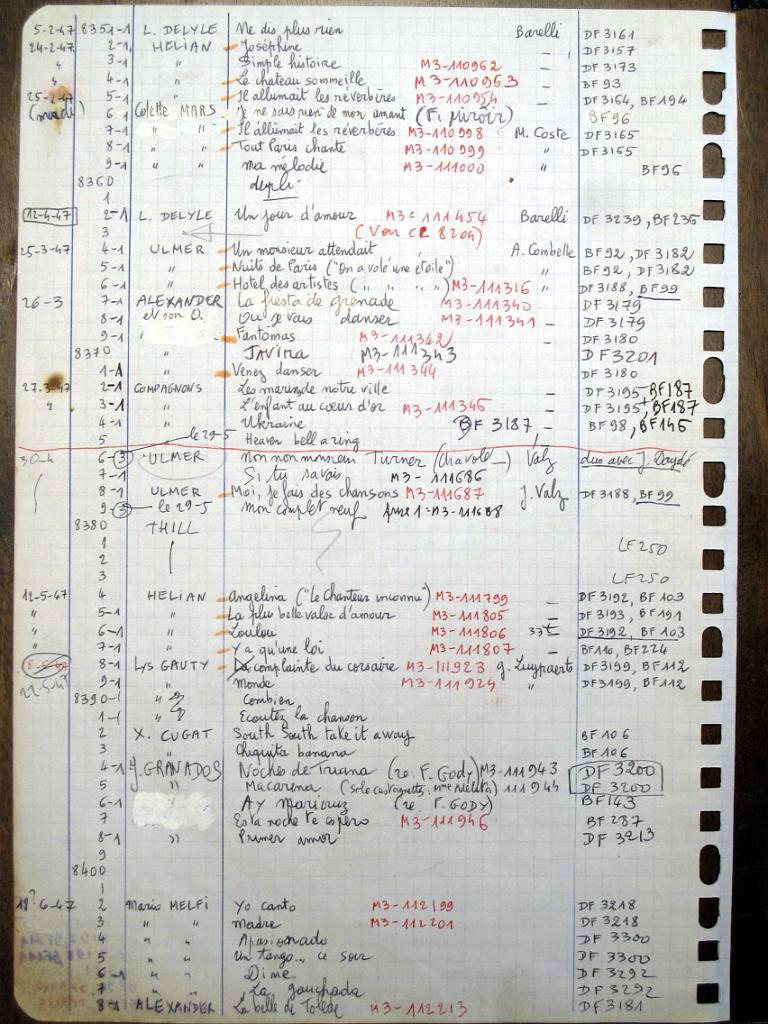 5-2-47 8351-1 L. DELYLE Me dis plus rien Barelli DF 3161
24-2-47 2-1 HELIAN Joséphine — DF 3157
" 3-1 " Simple histoire M3-110962 — DF 3173
" 4-1 " Le chateau sommeille M3-110963 — BF 93
25-2-47 5-1 " Il allumait les réverbères M3-110954 — DF 3164, BF 194
(mardi) 6 Colette MARS Je ne sais rien de mon amant (F. miroir) BF96
7-1 " " Il allumait les réverbères M3-110998 M. Coste DF 3165
8-1 " " Tout Paris chante M3-110999 " DF 3165
9-1 " " Ma mélodie M3-111000 " BF96
8360 dépli
1
12-4-47 2-1 L. DELYLE Un jour d'amour M3-111454 Barelli DF 3239, BF 235
3 (Voir CL 8204)
25-3-47 4-1 ULMER Un monsieur attendait A. Combelle BF92, DF 3182
5-1 " Nuits de Paris ("On a volé une étoile") " BF92, DF 3182
6-1 " Hotel des artistes (" " " ") M3-111316 " DF 3188, BF99
26-3 7-1 ALEXANDER La fiesta de grenade M3-111340 DF 3179
8-1 et son O. Où je vais danser M3-111341 — DF 3179
9-1 Fantomas M3-111342 — DF 3180
8370 " JAVINA M3-111343 DF 3201
1-1 " Venez danser M3-111344 DF 3180
27-3-47 2-1 COMPAGNONS Les marins de notre ville — DF 3195, BF187
" 3-1 " L'enfant au coeur d'or M3-111345 — DF 3195, BF187
4-1 " Ukraine BF 3187 — BF 98, BF145
5 le 29-5 Heaven bell a ring
30-4 6-3 ULMER Mon mon monsieur Turner Valz duo avec J. Daydé
7-1 Si tu savais M3-111686
8-1 ULMER Moi, je fais des chansons M3-111687 J. Valz DF 3188, BF 99
9-3 le 29-5 Mon complet neuf M3-111688
8380 THILL
1 LF 250
2
3 LF 250
12-5-47 4 HELIAN Angelina ("Le Chanteur inconnu") M3-111799 — DF 3192, BF 103
" 5-1 " La plus belle valse d'amour M3-111805 — DF 3193, BF 191
" 6-1 " Loulou M3-111806 33t DF 3192, BF 103
" 7-1 " Y a qu'une loi M3-111807 — BF110, BF224
8-1 LYS GAUTY La complainte du corsaire M3-111923 G. Luypaerts DF 3199, BF 112
22-5-47 9-1 " Monde M3-111924 " DF 3199, BF 112
8390-1 " Combien
1-1 " Ecoutez la chanson
2 X. CUGAT South South take it away BF 106
3 " Chiquita banana BF 106
4-1 J. GRANADOS Noches de Triana (re. F. Gody) M3-111943 DF 3200
5 " Macarena (solo castagnettes, Mme Nikita) 111945 DF 3200
6-1 Ay Maricruz (re. F. GODY) BF143
7 Esta noche te espero M3-111946 BF 287
8-1 " Primer amor DF 3213
9
8400
1
18?-6-47 2 Mario MELFI Yo canto M3-112199 DF 3218
3 " " Madre M3-112201 DF 3218
4 " " Apasionado DF 3300
5 " " Un tango... ce soir DF 3300
6-1 " " Dime DF 3292
7 " La gauchada DF 3292
8-1 ALEXANDER La belle de Tolède M3-112213 DF 3181